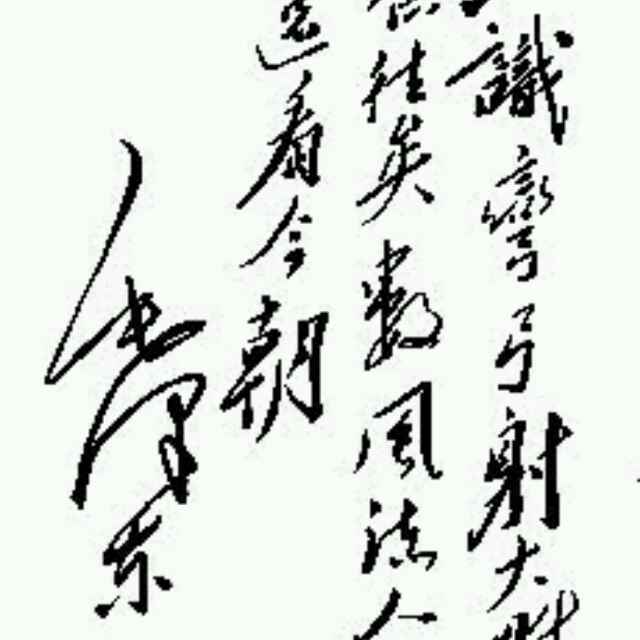 識彎弓射大雕
俱往矣數風流人
還看今朝
毛澤東